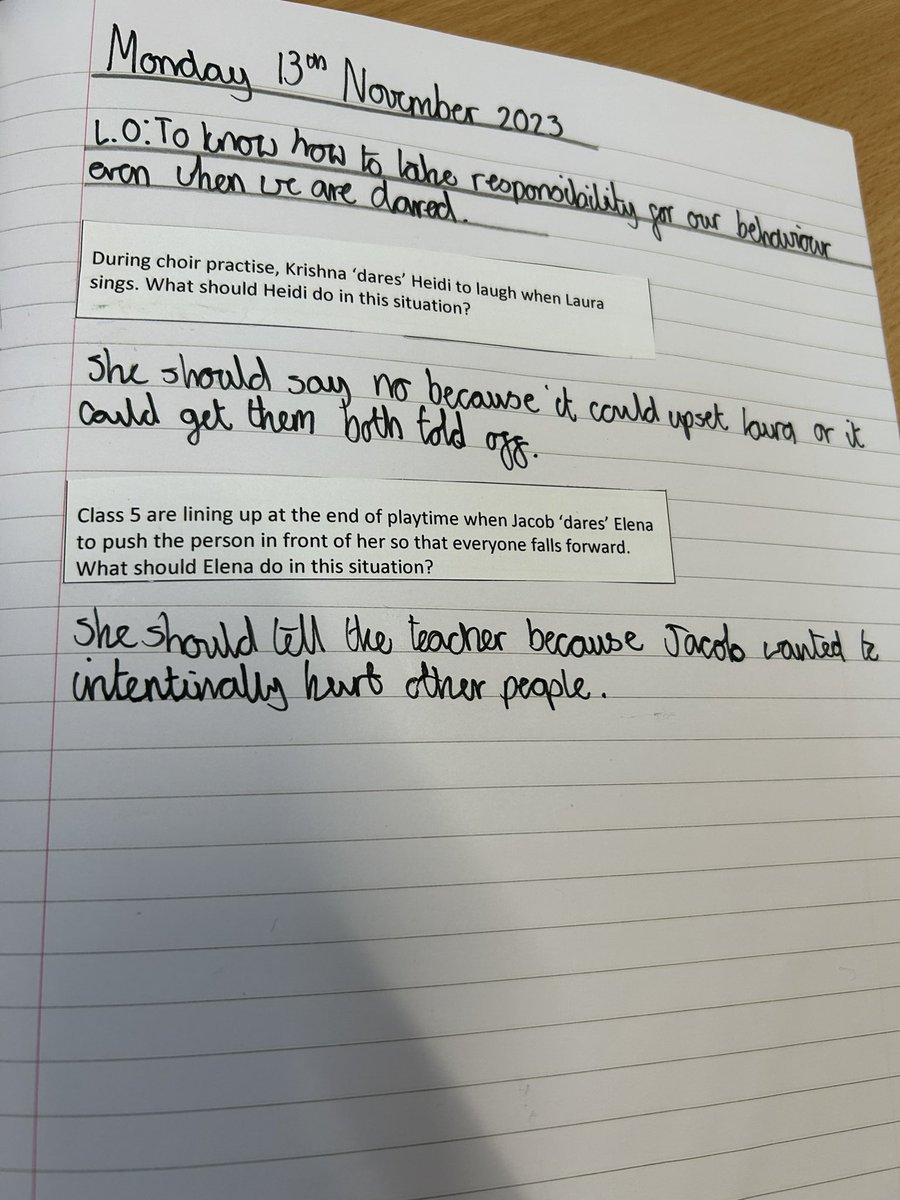 Monday 13th November 2023
L.O: To know how to take responsibility for our behaviour
even when we are dared.
During choir practise, Krishna ‘dares’ Heidi to laugh when Laura
sings. What should Heidi do in this situation?
She should say no because it could upset laura or it
could get them both told off.
Class 5 are lining up at the end of playtime when Jacob ‘dares’ Elena
to push the person in front of her so that everyone falls forward.
What should Elena do in this situation?
She should tell the teacher because Jacob wanted to
intentinally hurt other people.